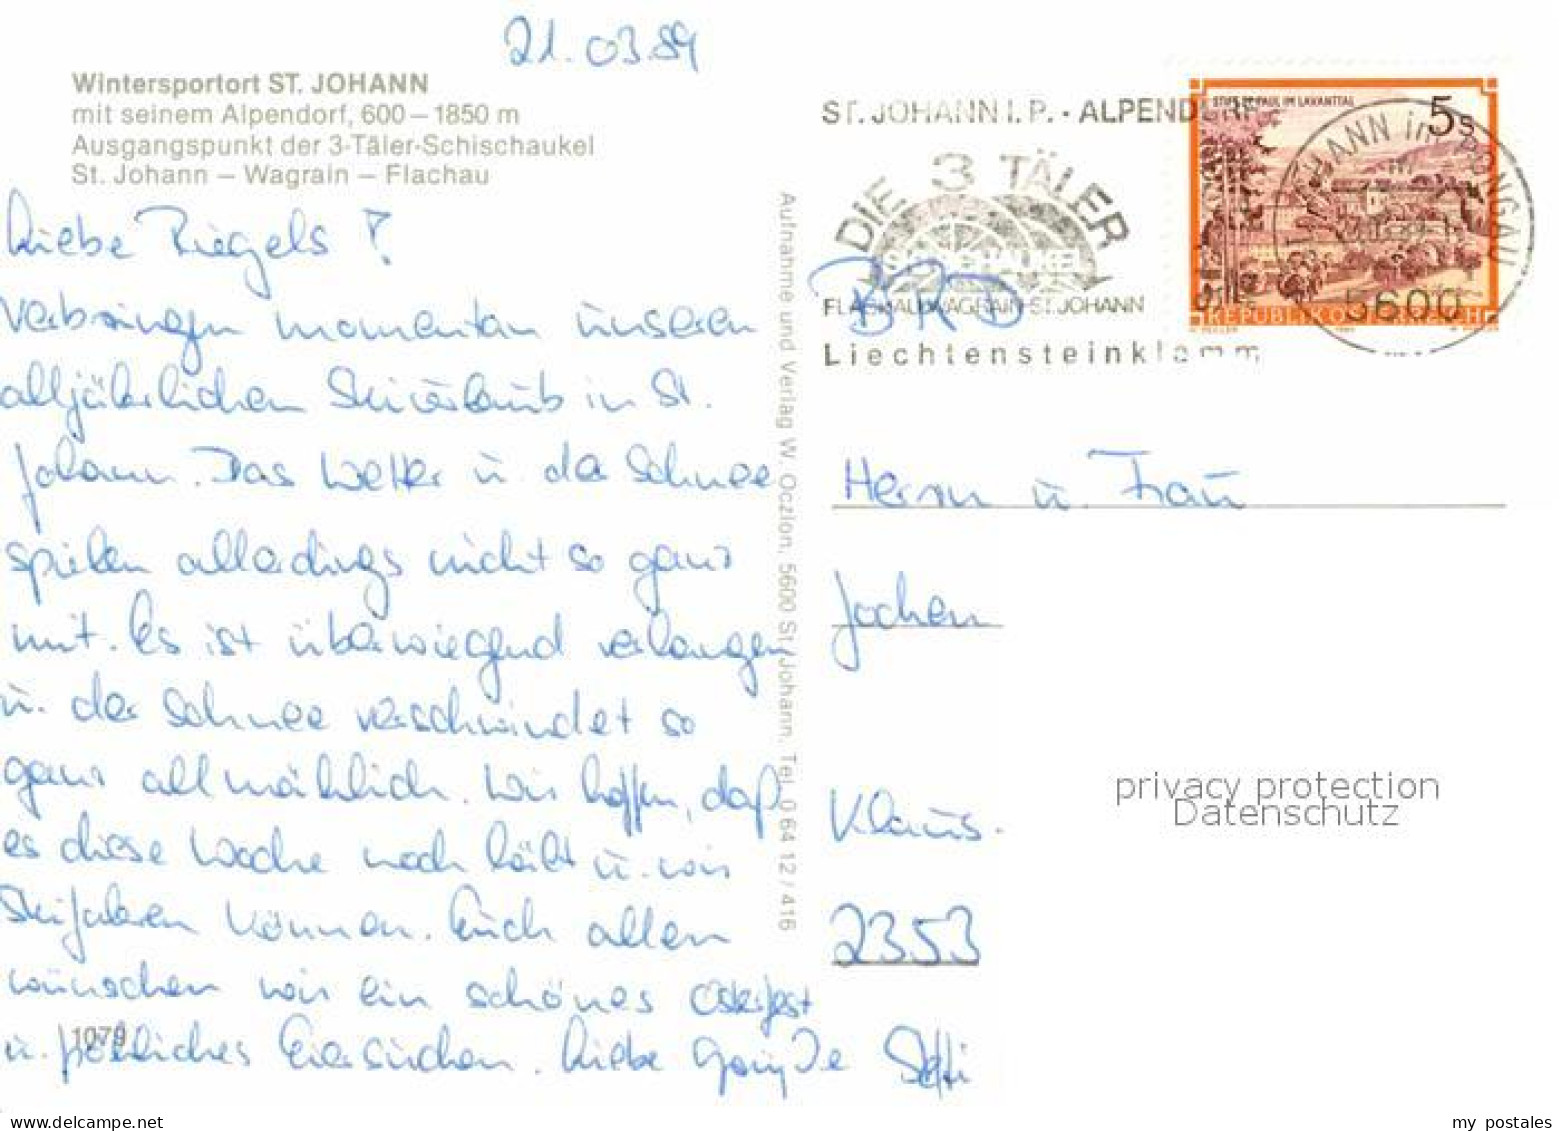 21.03.89
Wintersportort ST. JOHANN
mit seinem Alpendorf, 600 – 1850 m
Ausgangspunkt der 3-Täler-Schischaukel
St. Johann – Wagrain – Flachau
Liebe Riegels!
Verbringen momentan unseren
alljährlichen Skiurlaub in St.
Johann. Das Wetter u. der Schnee
spielen allerdings nicht so ganz
mit. Es ist überwiegend verhangen
u. der Schnee verschwindet so
ganz allmählich. Wir hoffen, daß
es diese Woche noch hält u. wir
Skifahren können. Euch allen
wünschen wir ein schönes Osterfest
u. fröhliches Eiersuchen. Liebe
1079
Aufnahme und Verlag W. Oczlon, 5600 St. Johann, Tel. 0 64 12 / 416
ST. JOHANN I. P. - ALPENDORF
DIE 3 TÄLER
FLACHAU-WAGRAIN-ST.JOHANN
Liechtensteinklamm
BRD
STIFT ST. PAUL IM LAVANTTAL
5S
REPUBLIK ÖSTERREICH
ST. JOHANN im PONGAU
5600
Herrn u. Frau
Jochen
Klaus.
2353
privacy protection
Datenschutz
my postales